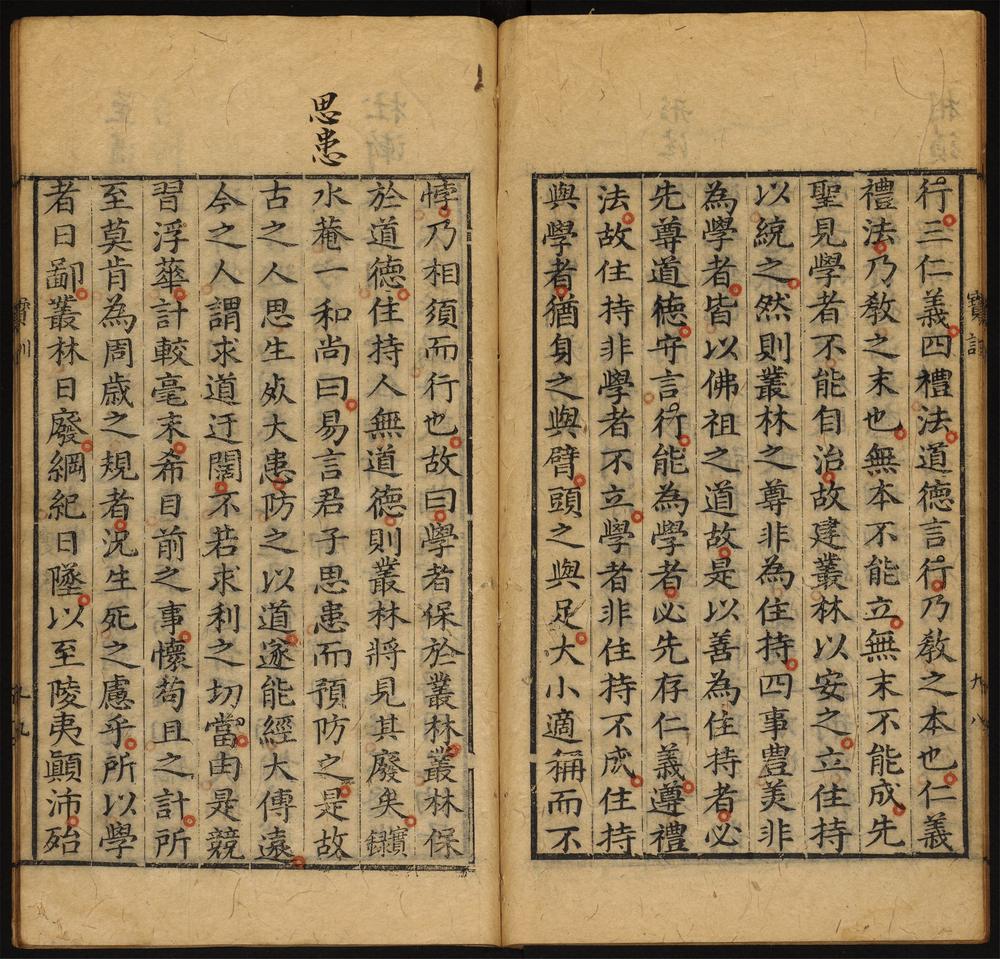 行三仁義四禮法道德言行乃敎之本也仁義
禮法乃敎之末也無本不能立無末不能成先
聖見學者不能自治故建叢林以安之立住持
以統之然則叢林之尊非為住持四事豊美非
為學者皆以佛祖之道故是以善為住持者必
先尊道德守言行能為學者必先存仁義遵禮
法故住持非學者不立學者非住持不成住持
與學者猶身之與臂頭之與足大小適稱而不
悖乃相須而行也故曰學者保於叢林叢林保
於道德住持人無道德則叢林將見其廢矣實錄
思患
水菴一和尚曰易言君子思患而預防之是故
古之人思生死大患防之以道遂能經大傳遠
今之人謂求道迂闊不若求利之切當由是競
習浮華計較毫末希目前之事懷苟且之計所
至莫肯為周歲之規者況生死之慮乎所以學
者日鄙叢林日廢綱紀日墜以至陵夷顚沛殆